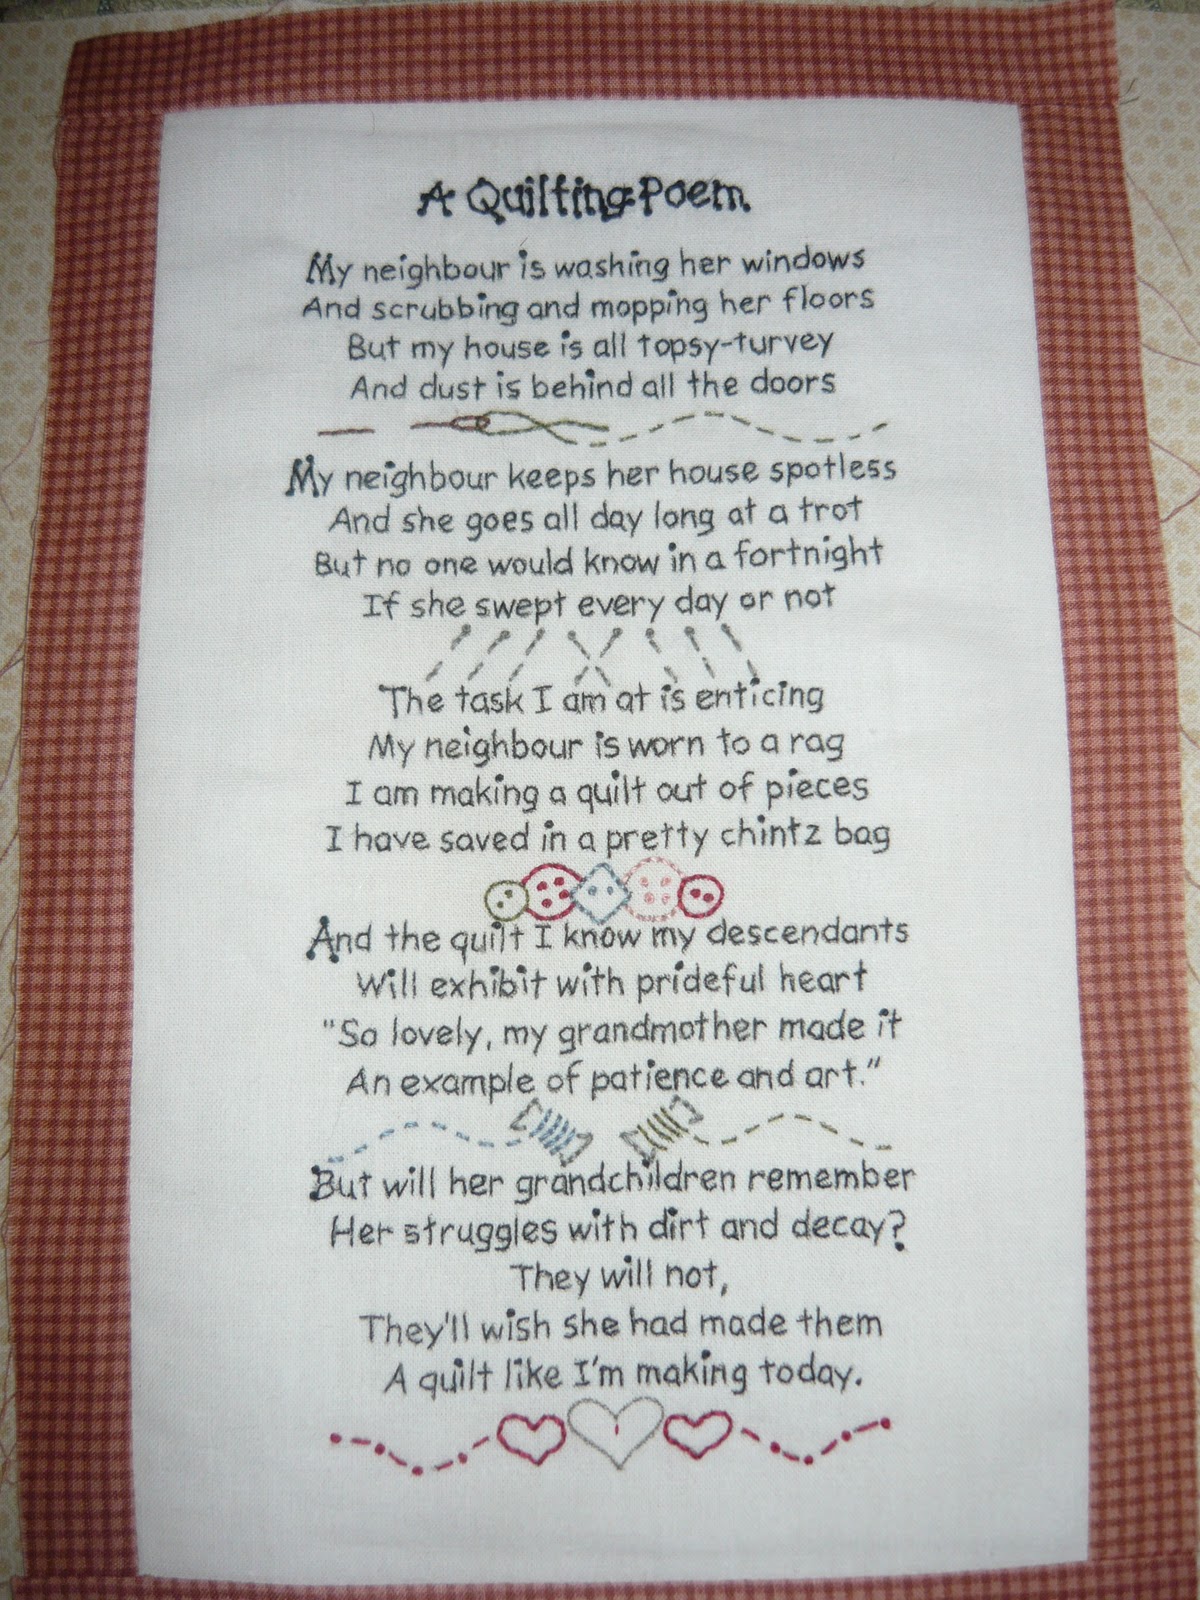 A Quilting Poem
My neighbour is washing her windows
And scrubbing and mopping her floors
But my house is all topsy-turvey
And dust is behind all the doors
My neighbour keeps her house spotless
And she goes all day long at a trot
But no one would know in a fortnight
If she swept every day or not
The task I am at is enticing
My neighbour is worn to a rag
I am making a quilt out of pieces
I have saved in a pretty chintz bag
And the quilt I know my descendants
Will exhibit with prideful heart
"So lovely, my grandmother made it
An example of patience and art."
But will her grandchildren remember
Her struggles with dirt and decay?
They will not,
They'll wish she had made them
A quilt like I'm making today.